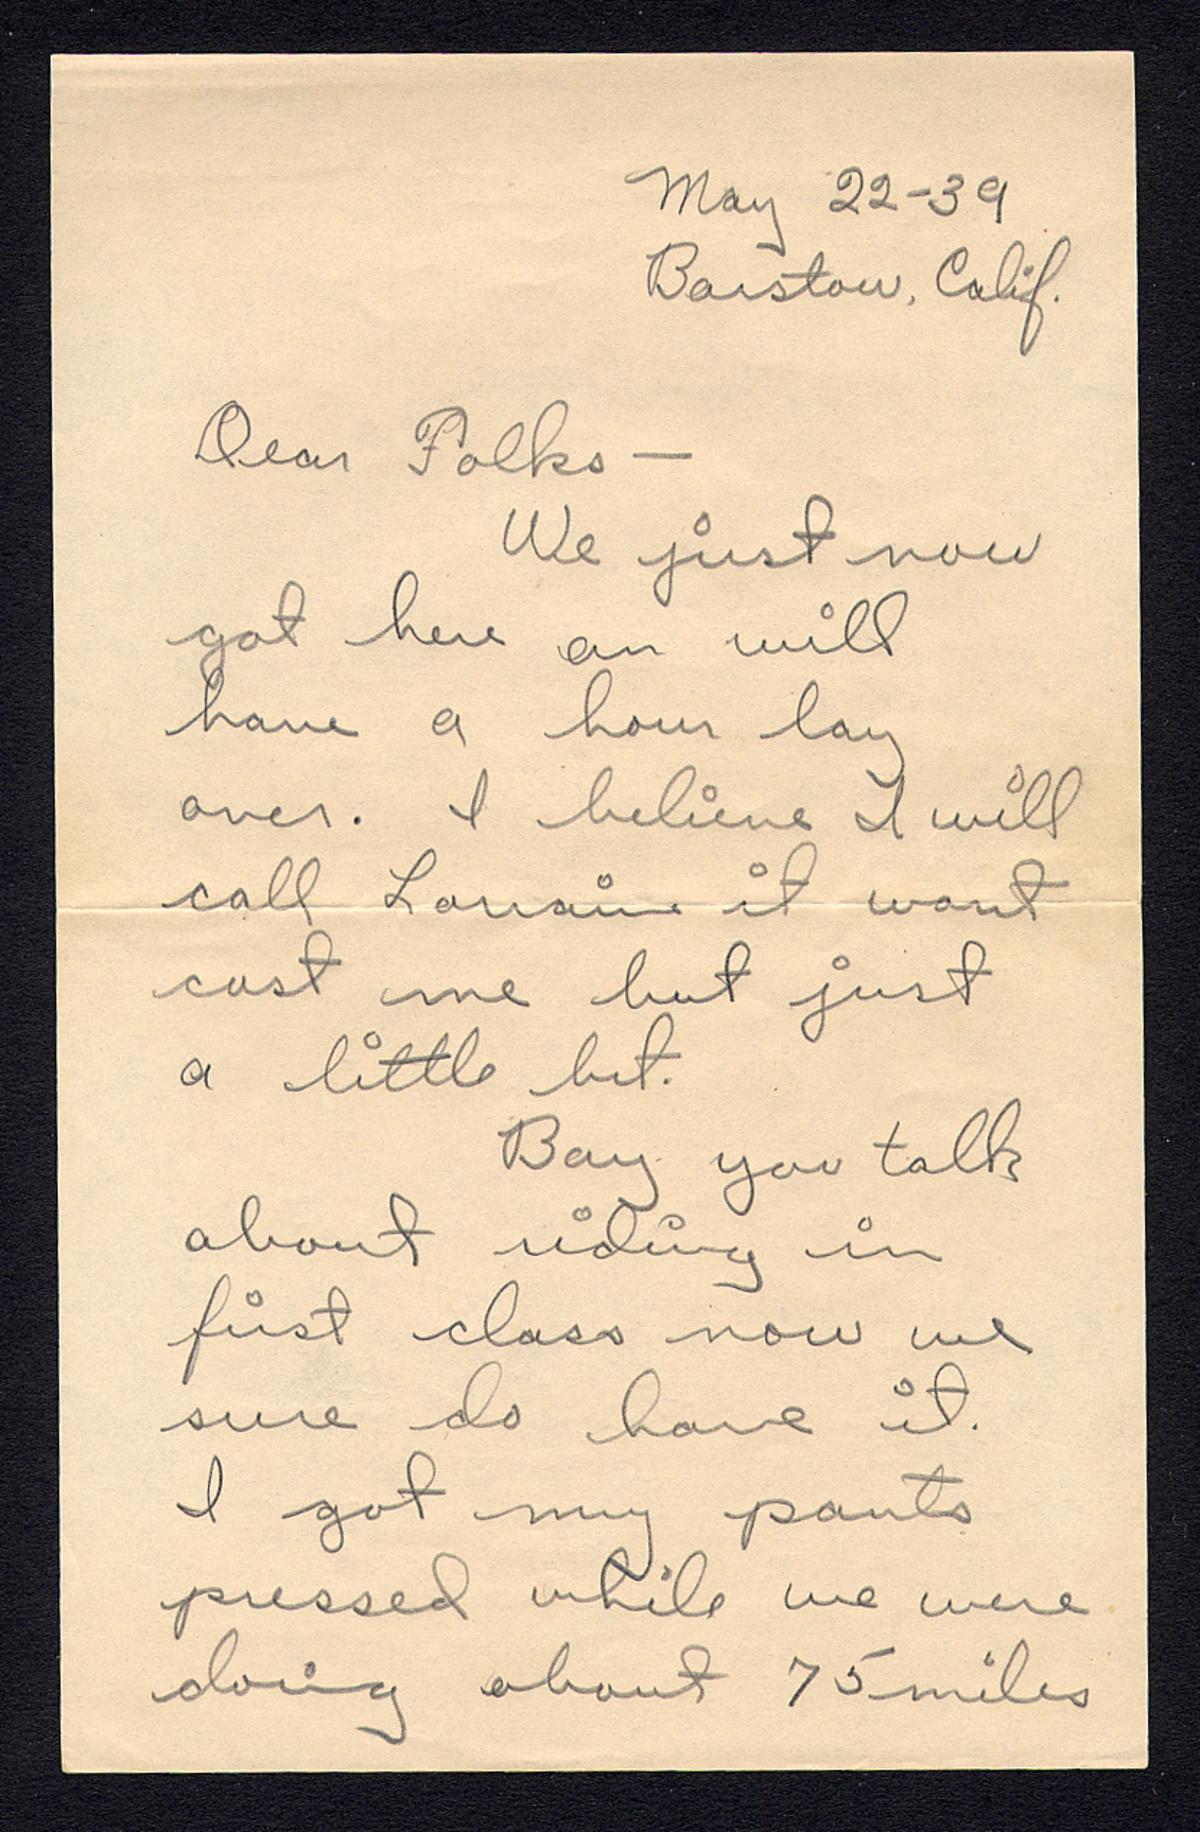 May 22-39
Barstow, Calif.
Dear Folks —
We just now
got here an will
have a hour lay
over. I believe I will
call Lorraine it wont
cost me but just
a little bit.
Boy you talk
about riding in
first class now we
sure do have it.
I got my pants
pressed while we were
doing about 75 miles